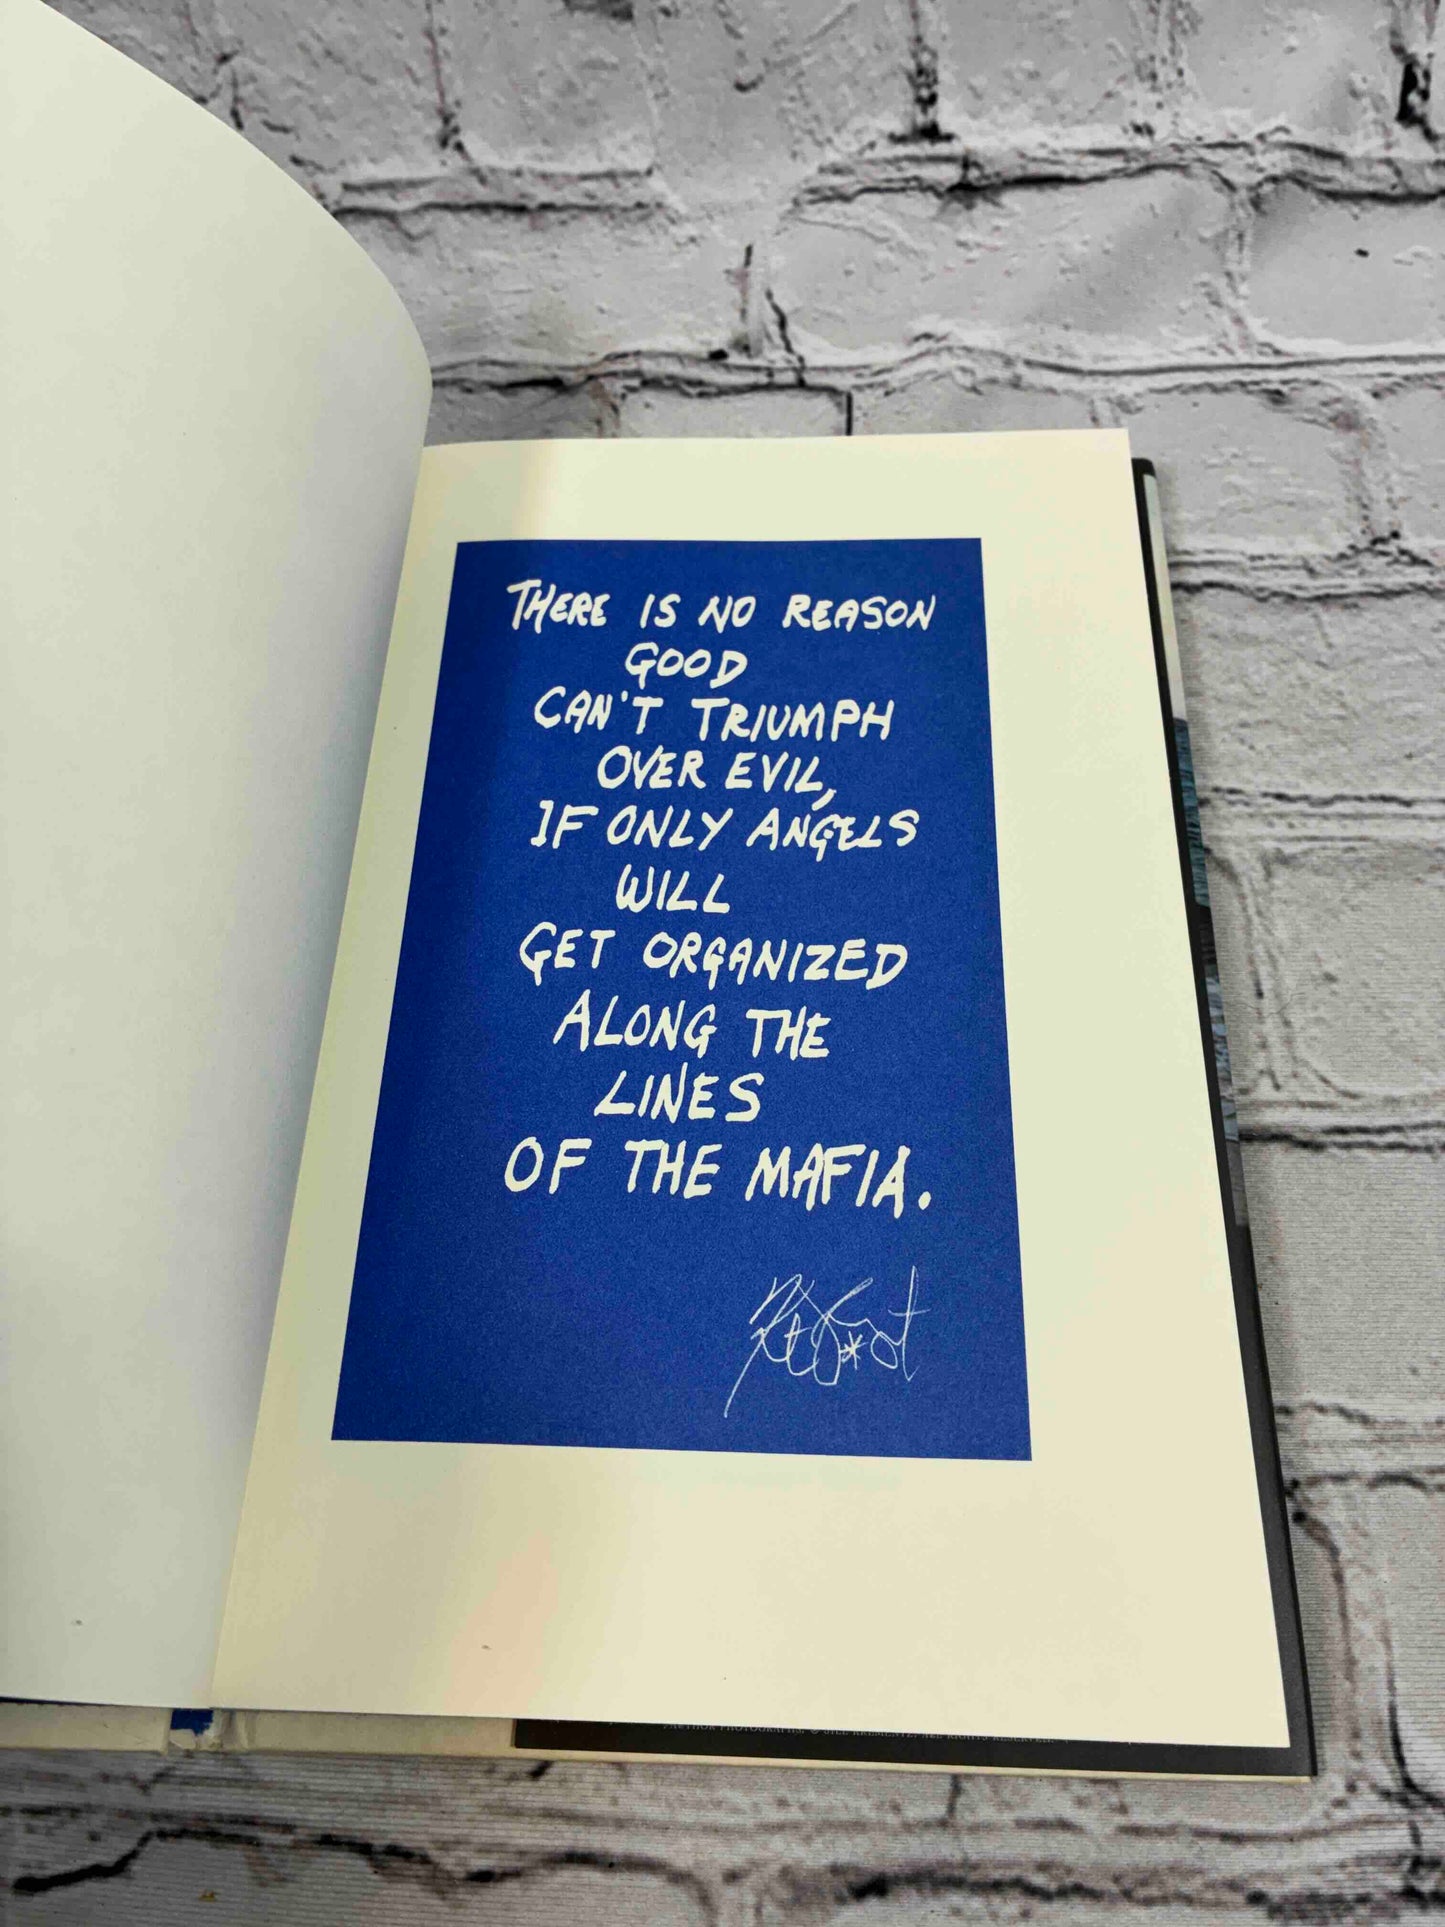 THERE IS NO REASON
GOOD
CAN'T TRIUMPH
OVER EVIL,
IF ONLY ANGELS
WILL
GET ORGANIZED
ALONG THE
LINES
OF THE MAFIA.
AUTHOR PHOTOGRAPHS: ©
ALL RIGHTS RESERVED.